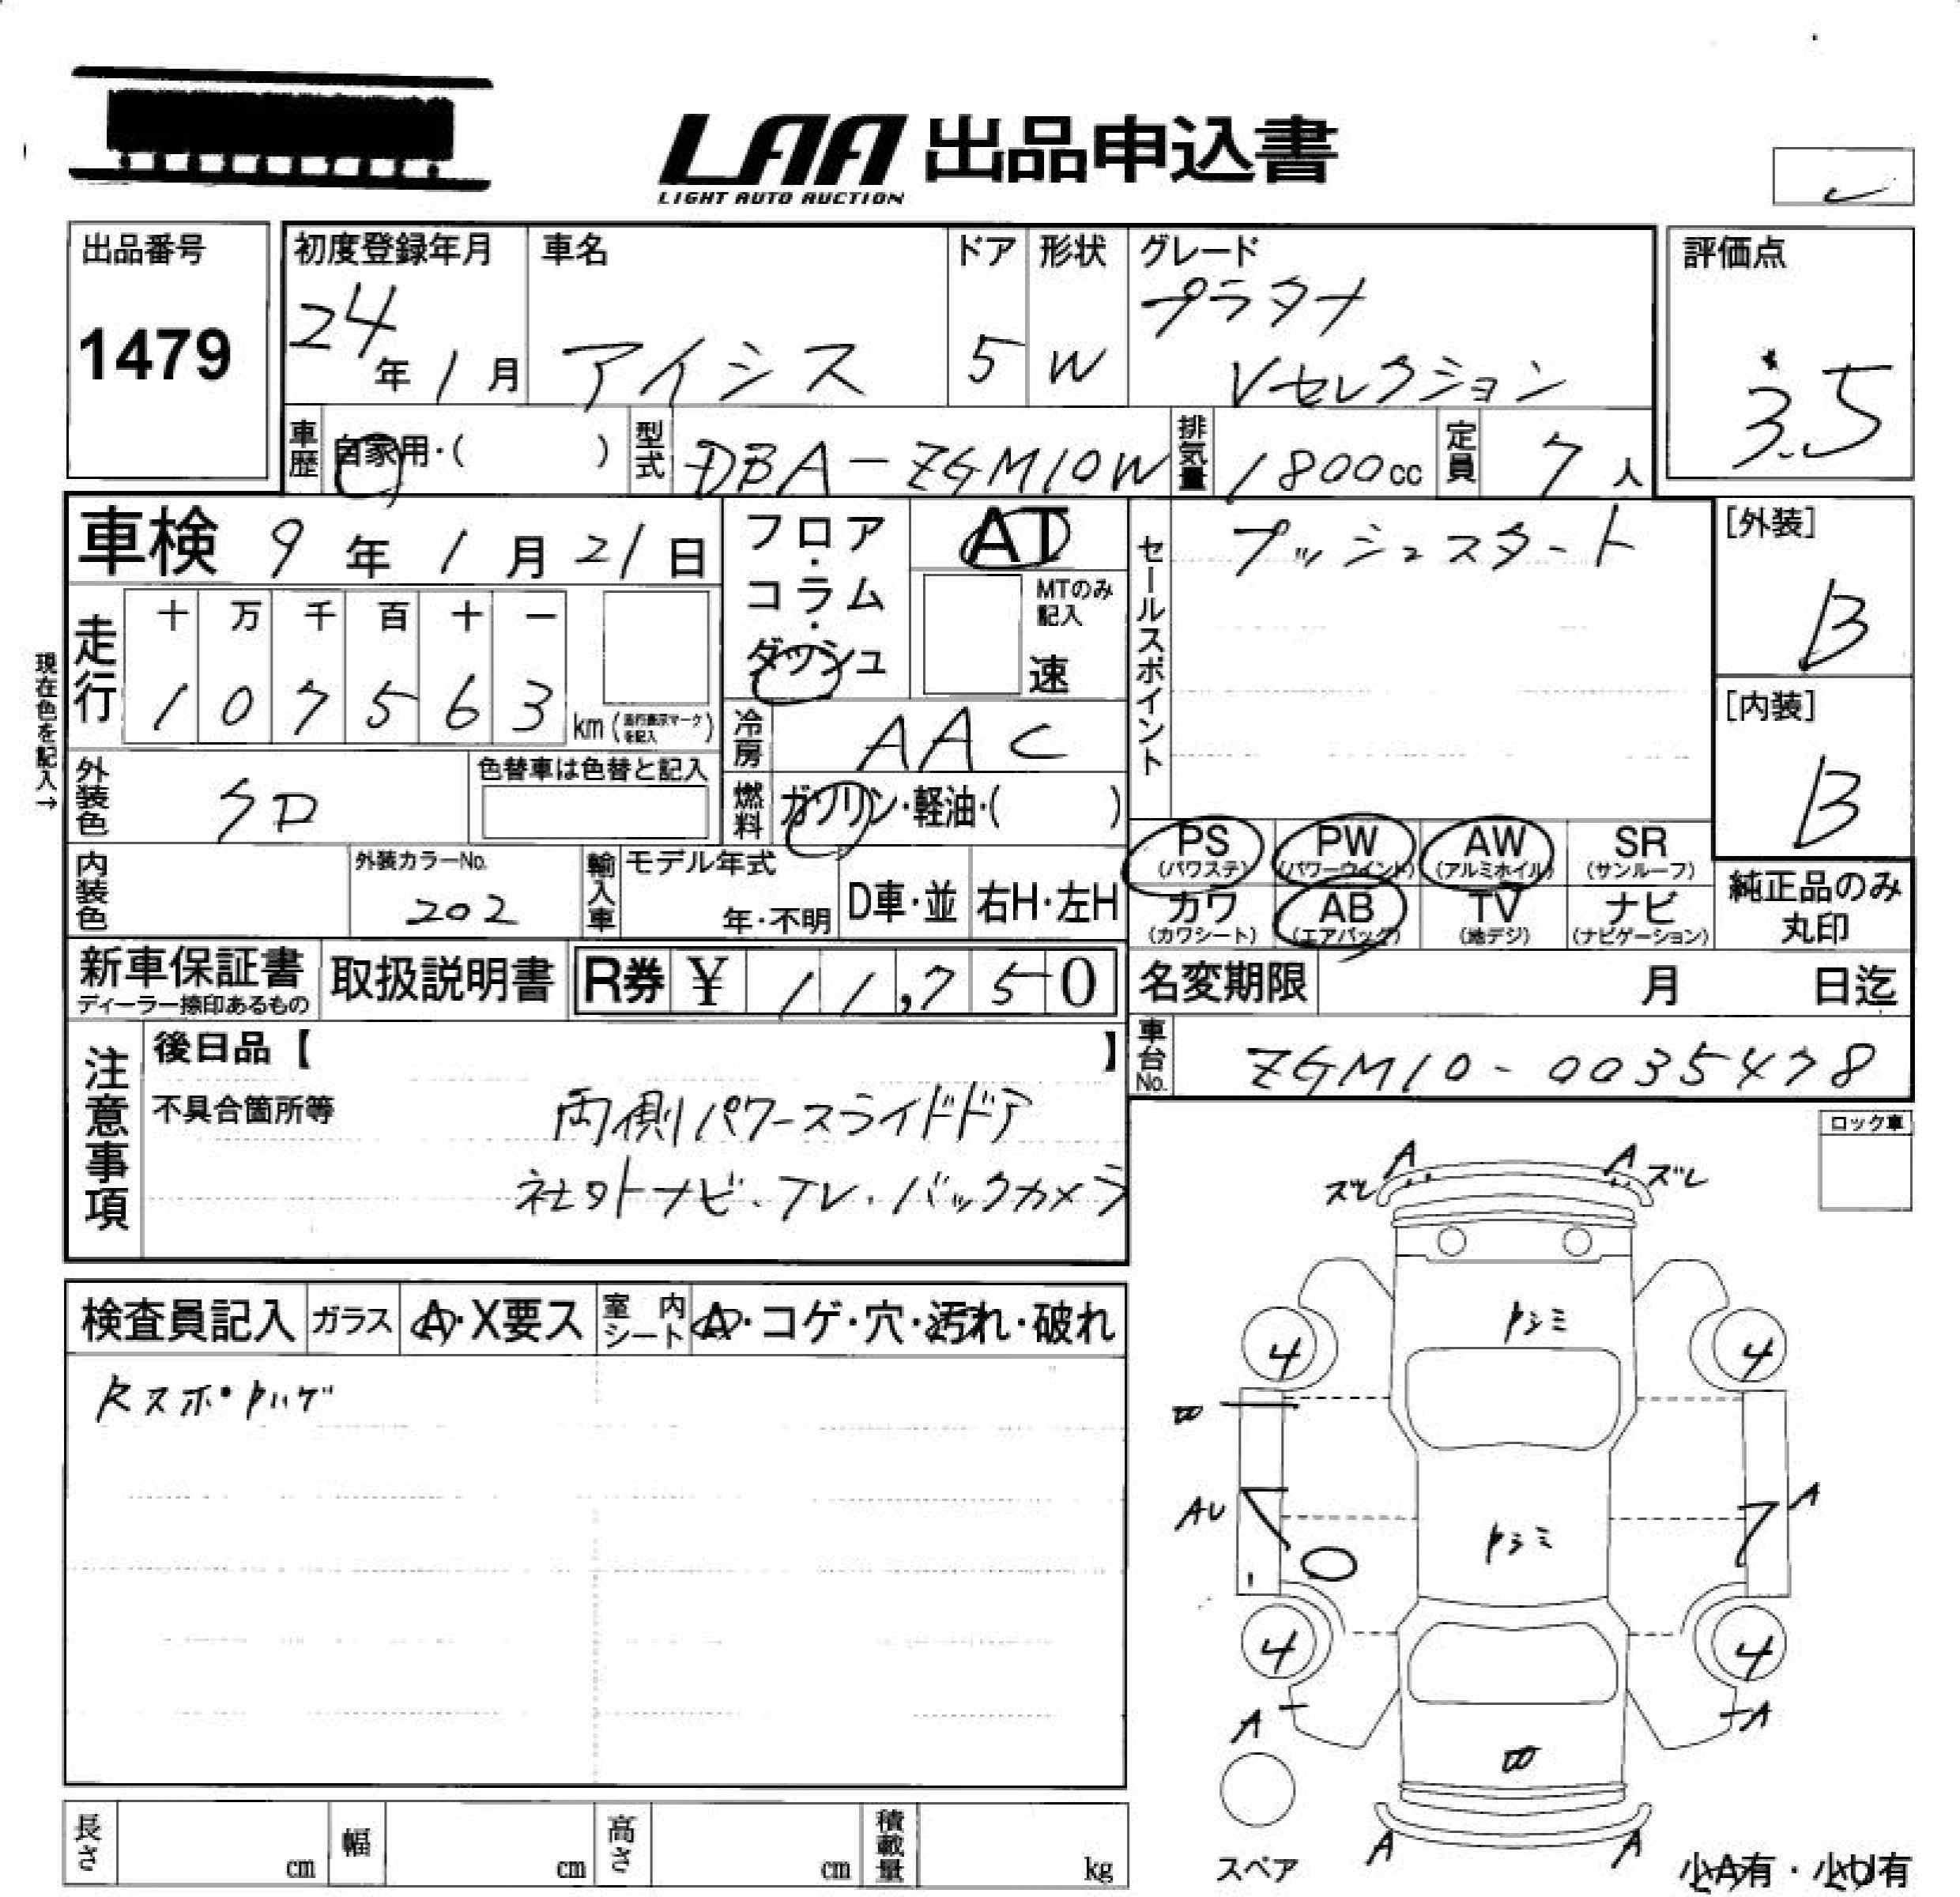 LAA 出品申込書
LIGHT AUTO AUCTION
出品番号
1479
初度登録年月
24年1月
車名
アイシス
ドア
5
形状
W
グレード
プラタナ
Vセレクション
評価点
3.5
車歴
自家用・( )
型式
DBA-ZGM10W
排気量
1800cc
定員
7人
車検 9年1月21日
フロア・コラム・ダッシュ
AT
MTのみ記入
速
セールスポイント
プッシュスタート
[外装]
B
[内装]
B
現在色を記入→
走行
十 万 千 百 十 一
1 0 7 5 6 3
km (走行表示マークを記入)
冷房
AAC
燃料
ガソリン・軽油・( )
外装色
クロ
色替車は色替と記入
内装色
外装カラーNo.
202
輸入車
モデル年式
年・不明
D車・並
右H・左H
PS (パワステ)
PW (パワーウインド)
AW (アルミホイル)
SR (サンルーフ)
カワ (カワシート)
AB (エアバッグ)
TV (地デジ)
ナビ (ナビゲーション)
純正品のみ丸印
新車保証書
ディーラー捺印あるもの
取扱説明書
R券 ¥ 11,750
名変期限 月 日迄
車台No.
ZGM10-0035478
注意事項
後日品【 】
不具合箇所等
両側パワースライドドア
社外ナビ・TV・バックカメラ
ロック車
検査員記入
ガラス
A・X要ス
室内シート
A・コゲ・穴・汚れ・破れ
A A
ズレ ズレ
4 4
AU
A
4 4
A A
A A
スペア
小A有・小U有
長さ cm
幅 cm
高さ cm
積載量 kg